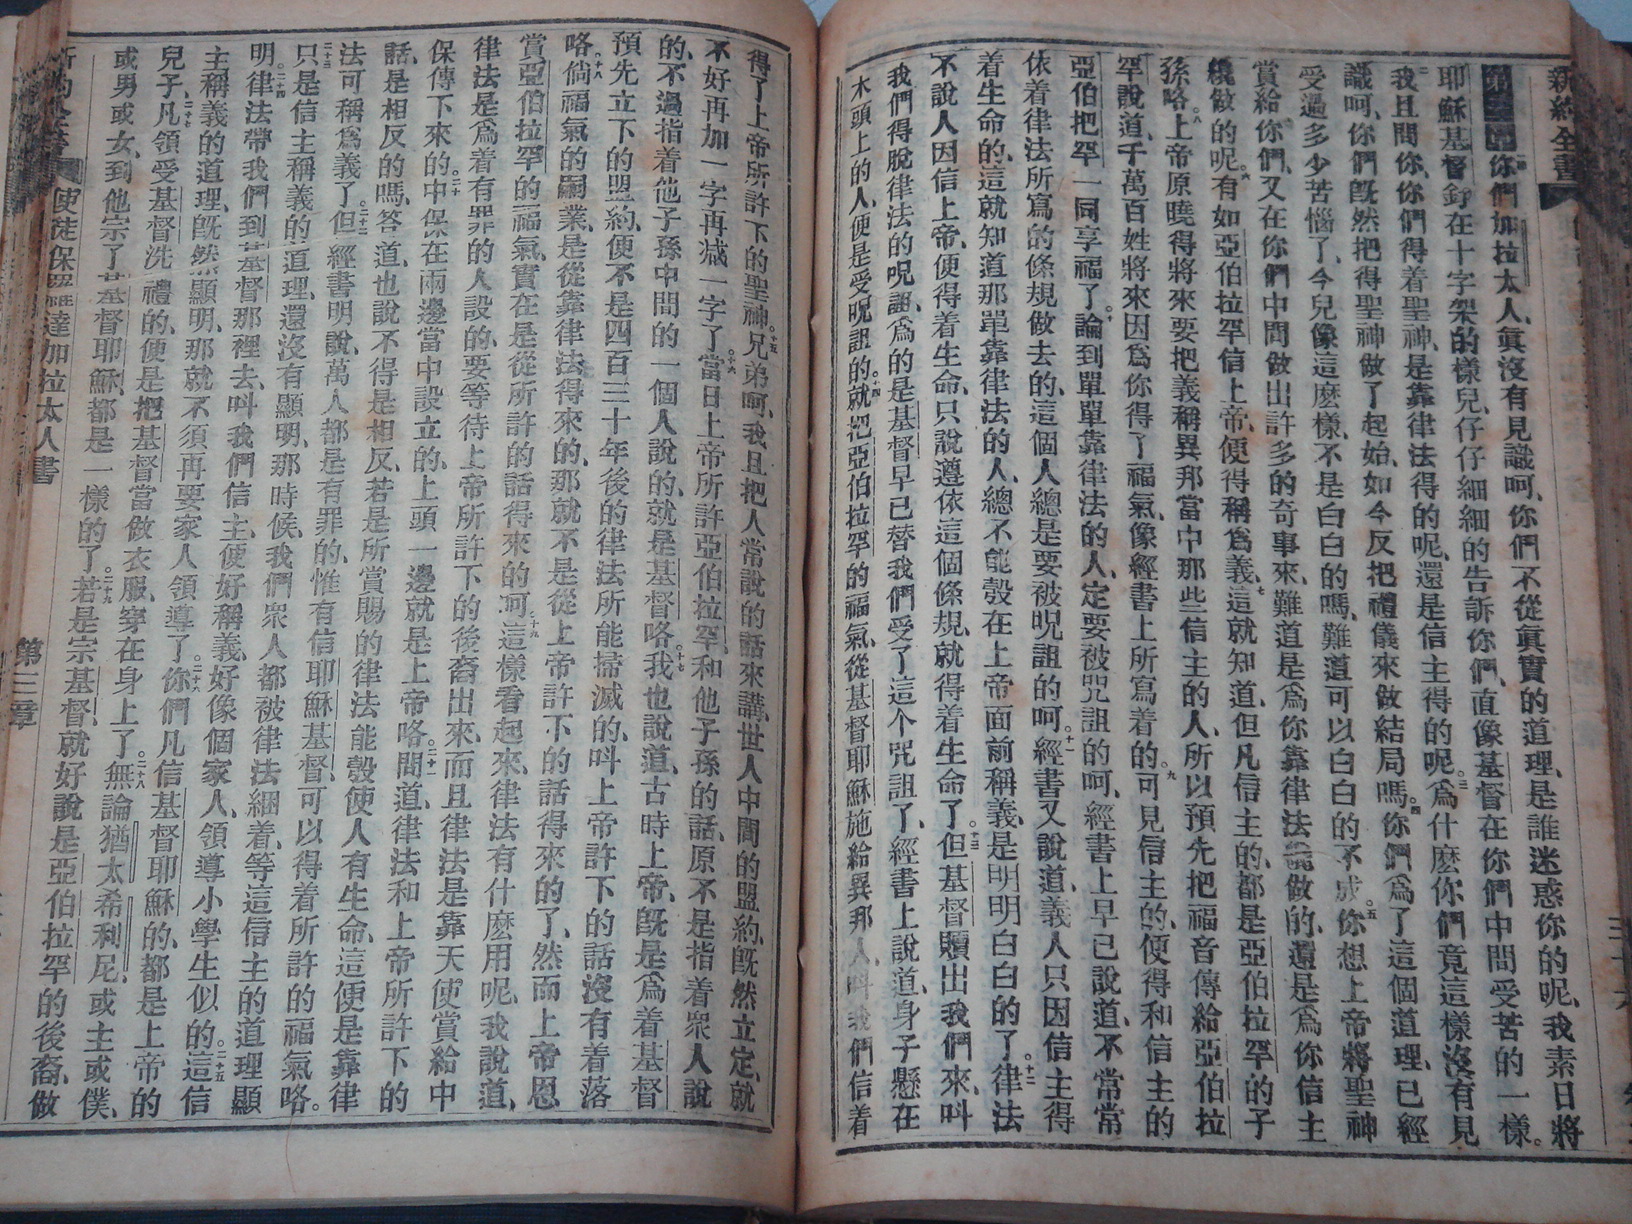 新約全書
第三章你們加拉太人、眞沒有見識呵、你們不從眞實的道理、是誰迷惑你的呢、我素日將
耶穌基督釘在十字架的樣兒、仔仔細細的告訴你們、直像基督在你們中間受苦的一樣。
二我且問你、你們得着聖神、是靠律法得的呢、還是信主得的呢。三爲什麽你們竟這樣沒有見
識呵、你們旣然把得聖神做了起始、如今反把禮儀來做結局嗎。四你們爲了這個道理、已經
受過多少苦惱了、今兒像這麽樣、不是白白的嗎、難道可以白白的不成。五你想上帝將聖神
賞給你們、又在你們中間做出許多的奇事來、難道是爲你靠律法纔做的、還是爲你信主
纔做的呢。六有如亞伯拉罕信上帝、便得稱爲義。七這就知道、但凡信主的、都是亞伯拉罕的子
孫咯。八上帝原曉得將來要把義稱異邦當中那些信主的人、所以預先把福音傳給亞伯拉
罕說道、千萬百姓將來因爲你得了福氣、像經書上所寫着的。九可見信主的、便得和信主的
亞伯把罕一同享福了。十論到單單靠律法的人、定要被咒詛的呵、經書上早已說道、不常常
依着律法所寫的條規做去的、這個人總是要被咒詛的呵。十一經書又說道、義人只因信主得
着生命的、這就知道那單靠律法的人、總不能彀在上帝面前稱義、是明明白白的了。十二律法
不說人因信上帝、便得着生命、只說遵依這個條規、就得着生命了。十三但基督贖出我們來、呌
我們得脫律法的咒詛、爲的是基督早已替我們受了這个咒詛了、經書上說道、身子懸在
木頭上的人、便是受咒詛的。十四就把亞伯拉罕的福氣、從基督耶穌施給異邦人、呌我們信着
得了上帝所許下的聖神。十五兄弟呵、我且把人常說的話來講、世人中間的盟約、旣然立定、就
不好再加一字再減一字了。十六當日上帝所許亞伯拉罕、和他子孫的話、原不是指着衆人說
的、不過指着他子孫中間的一個人說的、就是基督咯。十七我也說道、古時上帝、旣是爲着基督
預先立下的盟約、便不是四百三十年後的律法所能掃滅的、呌上帝許下的話沒有着落
咯。十八倘福氣的嗣業、是從靠律法得來的、那就不是從上帝許下的話得來的了、然而上帝恩
賞亞伯拉罕的福氣、實在是從所許的話得來的呵。十九這樣看起來、律法有什麽用呢、我說道、
律法是爲着有罪的人設的、要等待上帝所許下的後裔出來、而且律法是靠天使賞給中
保傳下來的。二十中保在兩邊當中設立的、上頭一邊就是上帝咯。二十一問道、律法和上帝所許下的
話、是相反的嗎、答道、也說不得是相反、若是所賞賜的律法能彀使人有生命、這便是靠律
法可稱爲義了。二十二但經書明說、萬人都是有罪的、惟有信耶穌基督、可以得着所許的福氣咯。
二十三只是信主稱義的道理、還沒有顯明、那時候、我們衆人都被律法綑着、等這信主的道理顯
明。二十四律法帶我們到基督那裡去、呌我們信主、便好稱義、好像個家人、領導小學生似的。二十五這信
主稱義的道理、旣然顯明、那就不須再要家人領導了。二十六你們凡信基督耶穌的、都是上帝的
兒子。二十七凡領受基督洗禮的、便是把基督當做衣服、穿在身上了。二十八無論猶太希利尼、或主或僕、
或男或女、到他宗了基督耶穌、都是一樣的了。二十九若是宗基督、就好說是亞伯拉罕的後裔、做
新約全書 使徒保羅達加拉太人書 第三章